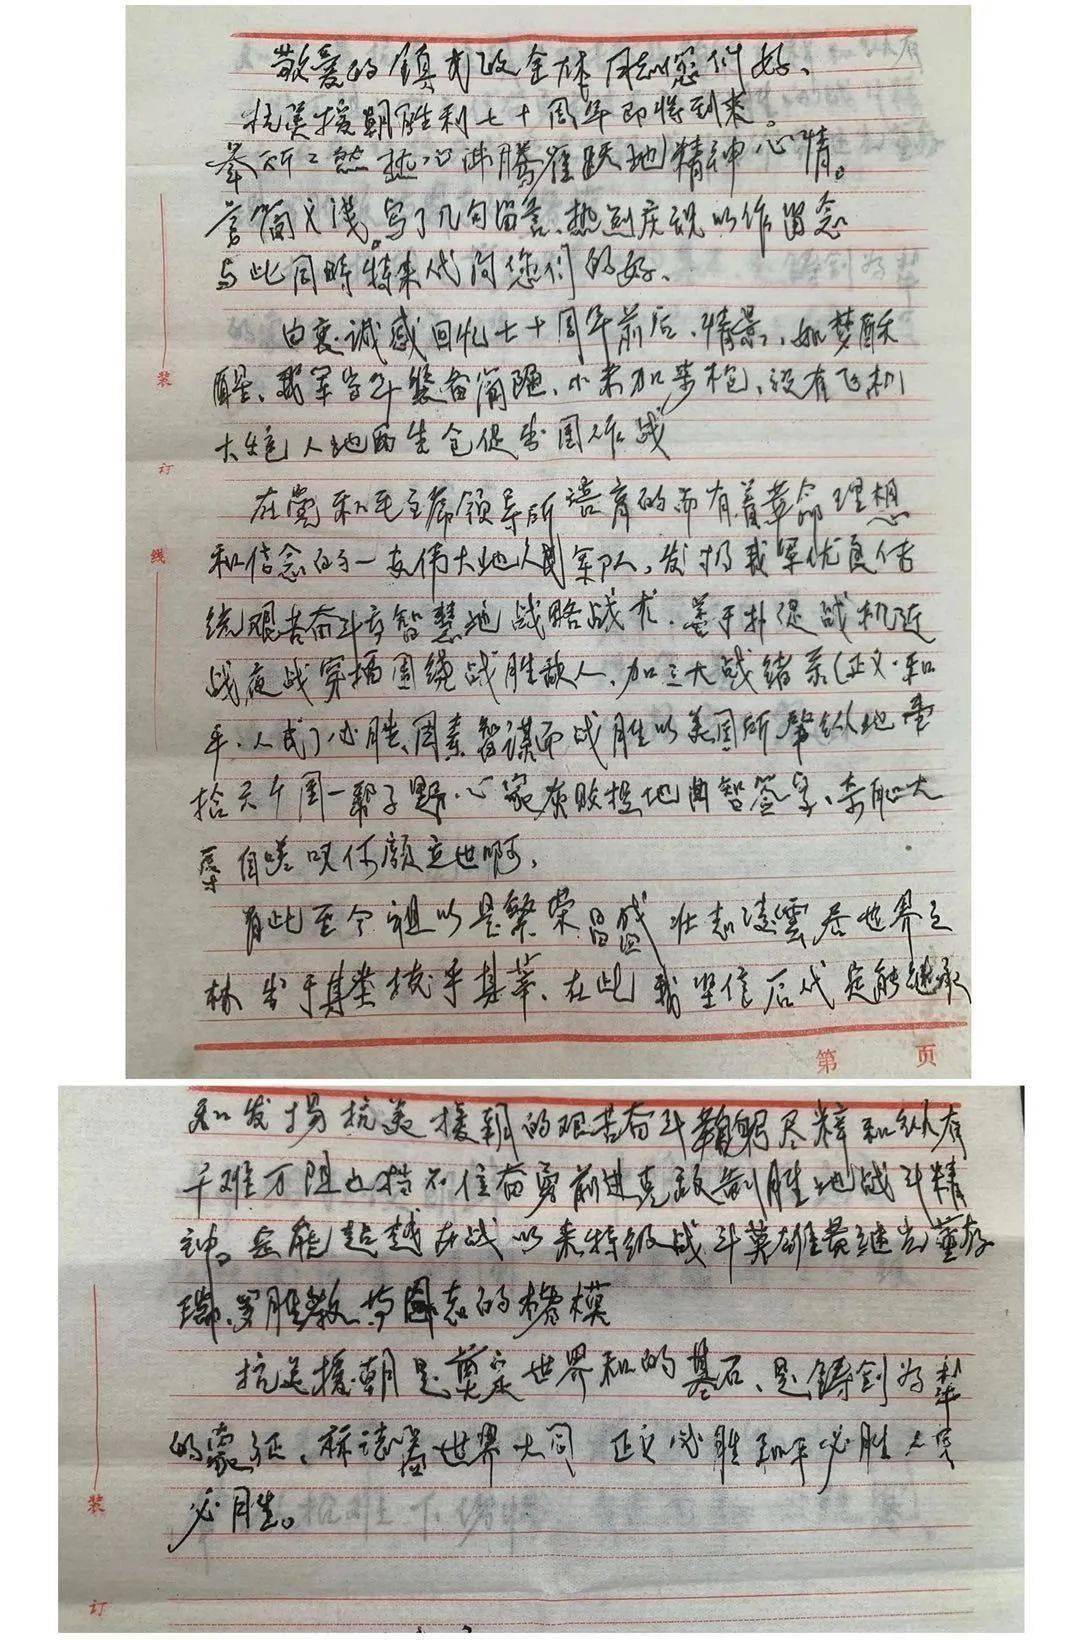 敬爱的镇武政全体同志您们好、
抗美援朝胜利七十周年即将到来。
举所之然热心沸腾雀跃地精神心情。
言简文浅。写了几句留言、热烈庆祝以作留念
与此同时特来代问您们的好、
由衷诚感回忆七十周年前后、情景、如梦酥
醒、我军当年装备简陋、小米加步枪、没有飞机
大炮人地两生仓促出国作战
在党和毛主席领导所培育的而有着革命理想
和信念的一支伟大地人民军队，发扬我军优良传
统艰苦奋斗智慧地战略战术、善于扑促战机近
战夜战穿插围绕战胜敌人、加三大战绪系(正义·和
平、人民)必胜、因素智谋而战胜以美国所肇纵地
拾六个国一帮子野心家灰败投地曲智签字、
自嗟叹何颜立世啊，
有此至今祖以是繁荣昌盛壮志凌雲居世界之
林出于其类拔乎其萃、在此我坚信后代定能继承
和发扬抗美援朝的艰苦奋斗鞠躬尽粹和纵有
千难万阻也挡不住奋勇前进克敌制胜地战斗精
神。定能超越在战以来特级战斗英雄黄继光董存
瑞、罗胜教、等同志的楷模
抗美援朝是奠定世界和的基石、是铸剑为犁
的象征、标志着世界大同 正义必胜和平必胜人民
必胜。
第 页
装
订
线
装
订